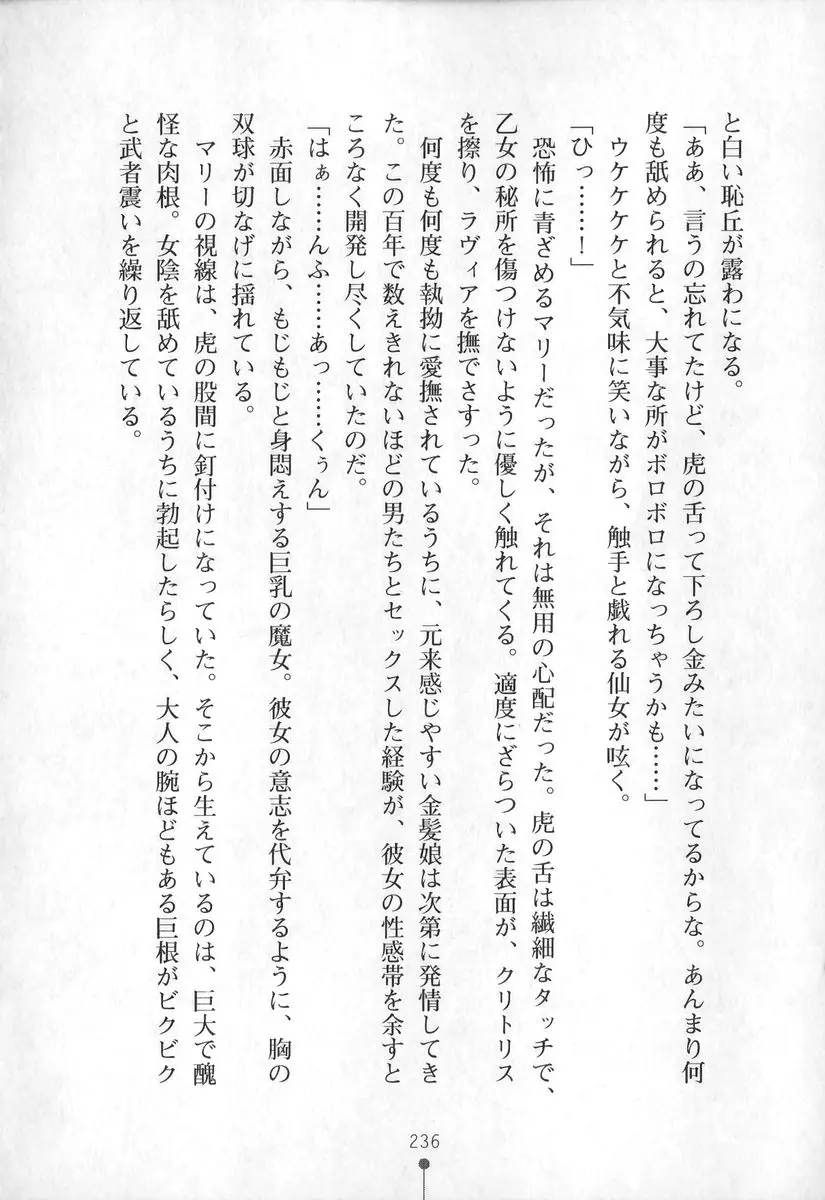 と白い恥丘が露わになる。
「ああ、言うの忘れてたけど、虎の舌って下ろし金みたいになってるからな。あんまり何
度も舐められると、大事な所がボロボロになっちゃうかも……」
ウケケケケと不気味に笑いながら、触手と戯れる仙女が呟く。
「ひっ……！」
恐怖に青ざめるマリーだったが、それは無用の心配だった。虎の舌は繊細なタッチで、
乙女の秘所を傷つけないように優しく触れてくる。適度にざらついた表面が、クリトリス
を擦り、ラヴィアを撫でさすった。
何度も何度も執拗に愛撫されているうちに、元来感じやすい金髪娘は次第に発情してき
た。この百年で数えきれないほどの男たちとセックスした経験が、彼女の性感帯を余すと
ころなく開発し尽くしていたのだ。
「はぁ……んふ……あっ……くぅん」
赤面しながら、もじもじと身悶えする巨乳の魔女。彼女の意志を代弁するように、胸の
双球が切なげに揺れている。
マリーの視線は、虎の股間に釘付けになっていた。そこから生えているのは、巨大で醜
怪な肉根。女陰を舐めているうちに勃起したらしく、大人の腕ほどもある巨根がビクビク
と武者震いを繰り返している。
236